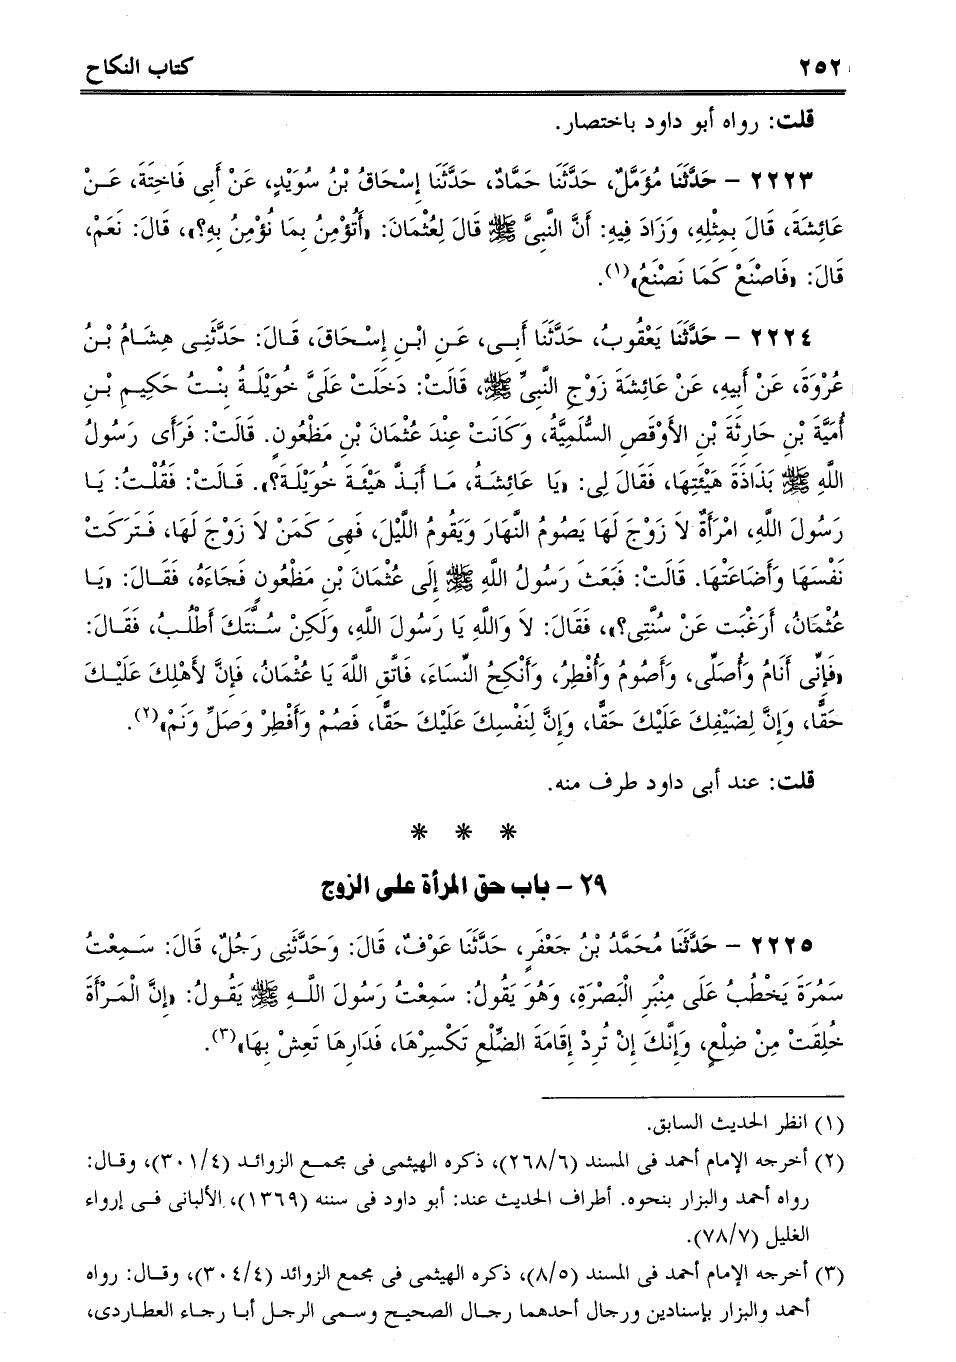 ٢٥٢ كتاب النكاح
قلت: رواه أبو داود باختصار.
٢٢٢٣ – حَدَّثَنَا مُؤَمَّلٌ، حَدَّثَنَا حَمَّادٌ، حَدَّثَنَا إِسْحَاقُ بْنُ سُوَيْدٍ، عَنْ أَبِى فَاخِتَةَ، عَـنْ
عَائِشَةَ، قَالَ بِمِثْلِهِ، وَزَادَ فِيهِ: أَنَّ النَّبِىَّ ﷺ قَالَ لِعُثْمَانَ: «أَتُؤْمِنُ بِمَا نُؤْمِنُ بِهِ؟»، قَالَ: نَعَمْ،
قَالَ: «فَاصْنَعْ كَمَا نَصْنَعُ»(١).
٢٢٢٤ – حَدَّثَنَا يَعْقُوبُ، حَدَّثَنَا أَبِـى، عَـنِ ابْـنِ إِسْـحَاقَ، قَـالَ: حَدَّثَنِـى هِشَـامُ بْـنُ
عُرْوَةَ، عَنْ أَبِيهِ، عَنْ عَائِشَةَ زَوْجِ النَّبِىِّ ﷺ، قَالَتْ: دَخَلَتْ عَلَىَّ خُوَيْلَـةُ بِنْـتُ حَكِيـمِ بْـنِ
أُمَيَّةَ بْنِ حَارِثَةَ بْنِ الأَوْقَصِ السُّلَمِيَّةُ، وَكَانَتْ عِنْدَ عُثْمَانَ بْنِ مَظْعُونٍ. قَالَتْ: فَرَأَى رَسُولُ
اللَّهِ ﷺ بَذَاذَةَ هَيْئَتِهَا، فَقَالَ لِى: «يَا عَائِشَـةُ، مَـا أَبَـذَّ هَيْئَـةَ خُوَيْلَـةَ؟». قَـالَتْ: فَقُلْـتُ: يَـا
رَسُولَ اللَّهِ، امْرَأَةٌ لاَ زَوْجَ لَهَا يَصُومُ النَّهَارَ وَيَقُومُ اللَّيْلَ، فَهِىَ كَمَنْ لاَ زَوْجَ لَهَا، فَـتَرَكَتْ
نَفْسَهَا وَأَضَاعَتْهَا. قَالَتْ: فَبَعَثَ رَسُولُ اللَّهِ ﷺ إِلَى عُثْمَانَ بْنِ مَظْعُونٍ فَجَاءَهُ، فَقَـالَ: «يَـا
عُثْمَانُ، أَرَغْبَت عَنْ سُنَّتِى؟»، فَقَالَ: لاَ وَاللَّهِ يَا رَسُولَ اللَّهِ، وَلَكِنْ سُـنَّتَكَ أَطْلُـبُ، فَقَـالَ:
«فَإِنِّى أَنَامُ وَأُصَلِّى، وَأَصُومُ وَأُفْطِرُ، وَأَنْكِحُ النِّسَاءَ، فَاتَّقِ اللَّهَ يَا عُثْمَانُ، فَإِنَّ لأَهْلِكَ عَلَيْـكَ
حَقًّا، وَإِنَّ لِضَيْفِكَ عَلَيْكَ حَقًّا، وَإِنَّ لِنَفْسِكَ عَلَيْكَ حَقًّا، فَصُمْ وَأَفْطِرْ وَصَلِّ وَنَمْ»(٢).
قلت: عند أبى داود طرف منه.
* * *
٢٩ – باب حق المرأة على الزوج
٢٢٢٥ – حَدَّثَنَا مُحَمَّدُ بْنُ جَعْفَرٍ، حَدَّثَنَا عَوْفٌ، قَالَ: وَحَدَّثَنِى رَجُلٌ، قَالَ: سَـمِعْتُ
سَمُرَةَ يَخْطُبُ عَلَى مِنْبَرِ الْبَصْرَةِ، وَهُوَ يَقُولُ: سَمِعْتُ رَسُولَ اللَّـهِ ﷺ يَقُـولُ: «إِنَّ الْمَـرْأَةَ
خُلِقَتْ مِنْ ضِلَعٍ، وَإِنَّكَ إِنْ تُرِدْ إِقَامَةَ الضِّلْعِ تَكْسِرْهَا، فَدَارِهَا تَعِشْ بِهَا»(٣).
(١) انظر الحديث السابق.
(٢) أخرجه الإمام أحمد فى المسند (٢٦٨/٦)، ذكره الهيثمى فى مجمـع الزوائد (٣٠١/٤)، وقال:
رواه أحمد والبزار بنحوه. أطراف الحديث عند: أبو داود فى سننه (١٣٦٩)، الألبانى فـى إرواء
الغليل (٧٨/٧).
(٣) أخرجه الإمام أحمد فى المسند (٨/٥)، ذكره الهيثمى فى مجمع الزوائد (٣٠٤/٤)، وقـال: رواه
أحمد والبزار بإسنادين ورجال أحدهما رجـال الصحيـح وسـمى الرجـل أبـا رجـاء العطـاردى،